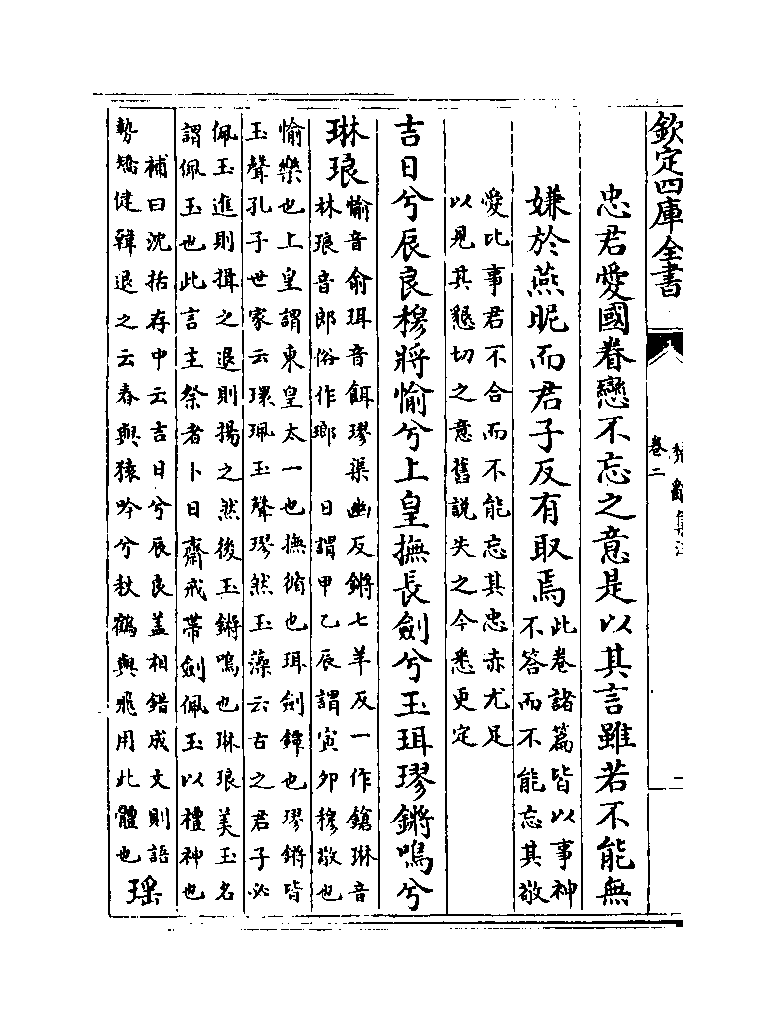 欽定四庫全書
卷二
忠君愛國眷戀不忘之意是以其言雖若不能無
嫌於燕昵而君子反有取焉此卷諸篇皆以事神
不答而不能忘其敬
愛比事君不合而不能忘其忠赤尤足
以見其懇切之意舊說失之今悉更定
吉日兮辰良穆將愉兮上皇撫長劍兮玉珥璆鏘鳴兮
琳琅愉音俞珥音餌璆渠幽反鏘七羊反一作鎗琳音
林琅音郎俗作瑯 日謂甲乙辰謂寅卯穆敬也
愉樂也上皇謂東皇太一也撫循也珥劍鐔也璆鏘皆
玉聲孔子世家云環珮玉聲璆然玉藻云古之君子必
佩玉進則揖之退則揚之然後玉鏘鳴也琳琅美玉名
謂佩玉也此言主祭者卜日齋戒帶劍佩玉以禮神也
補曰沈括存中云吉日兮辰良蓋相錯成文則語
勢矯健韓退之云春與猿吟兮秋鶴與飛用此體也瑤